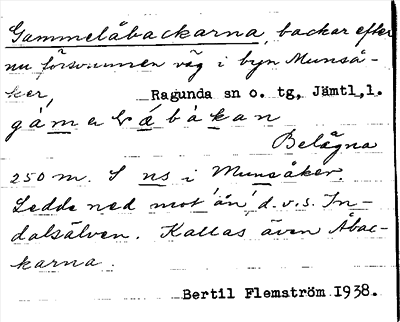 Gammelåbackarna, backar efter
nu försvunnen väg i byn Munså-
ker, Ragunda sn o. tg, Jämtl,l.
Belägna
250 m. S ns i Munsåker.
Ledde ned mot 'ån', d.v.s. In-
dalsälven. Kallas även Åbac-
karna.
Bertil Flemström 1938.